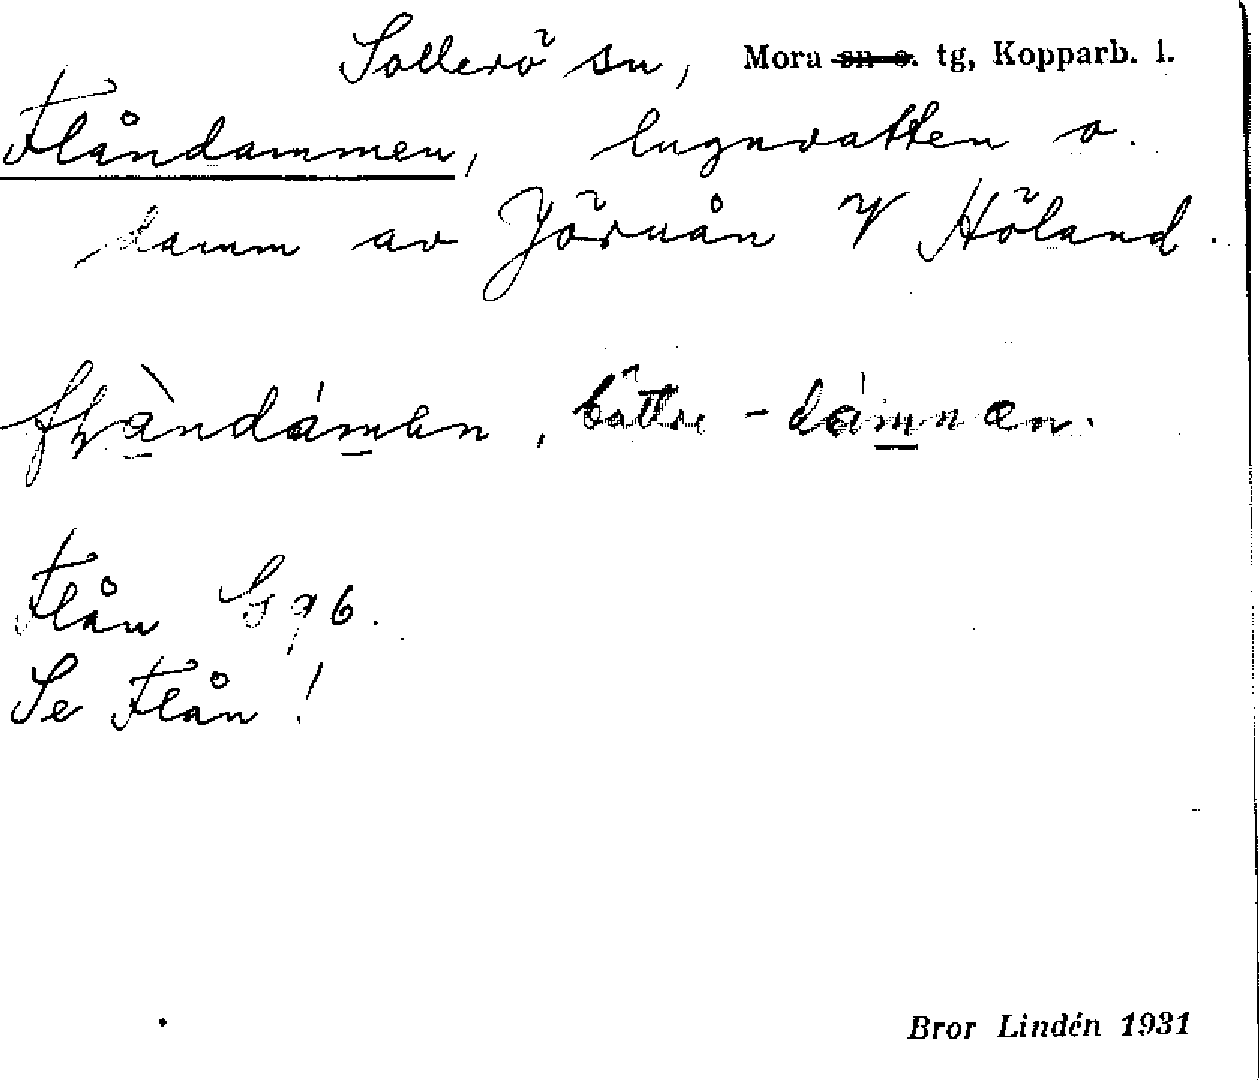 Sollerö sn, Mora sn o. tg, Kopparb. l.
Flåndammen, lugnvatten o.
damm av Jöruån V Höland.
bättre
Flån G 96.
Se Flån!
Bror Lindén 1931